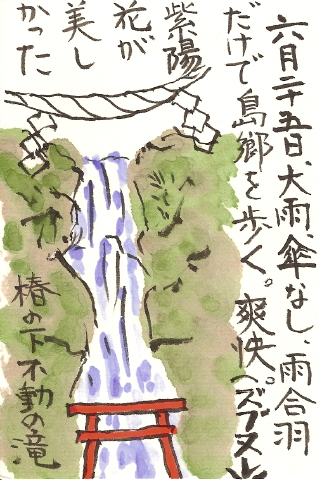 六月二十五日、大雨、傘なし、雨合羽
だけで島郷を歩く。爽快。ズブヌレ
紫陽
花が
美し
かった
椿の下不動の滝